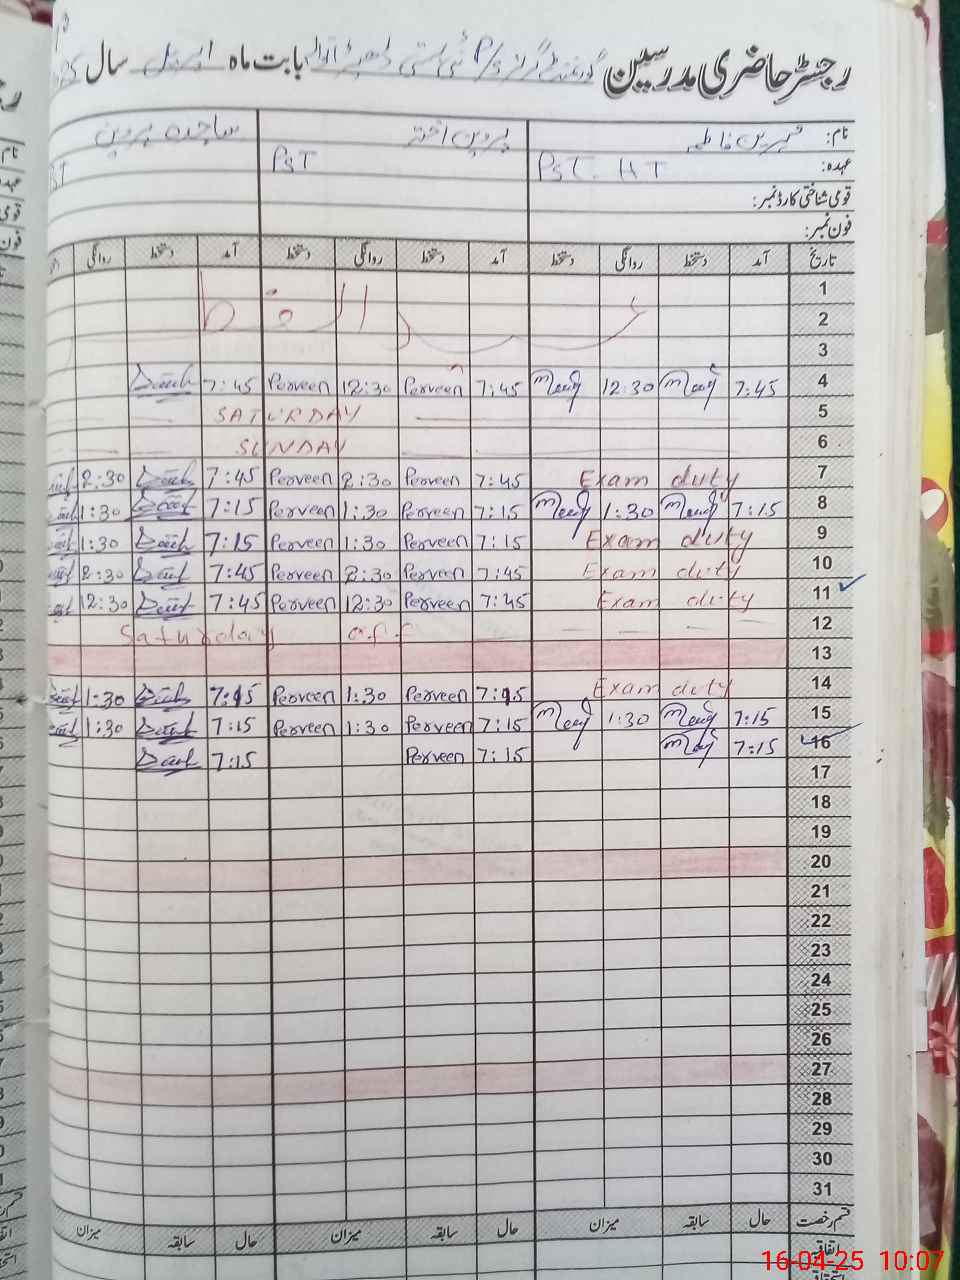 رجسٹر حاضری مدرسین گورنمنٹ گرلز P/S بستی بابت ماہ اپریل سال
نام: شیریں فاطمہ پروین اختر ساجدہ پروین
عہدہ: PST. HT PST ST
قومی شناختی کارڈ نمبر:
فون نمبر:
تاریخ آمد دستخط روانگی دستخط آمد دستخط روانگی دستخط آمد دستخط روانگی
1
2 عید الفطر
3
4 7:45 12:30 7:45 Perveen 12:30 Perveen 7:45
5 SATURDAY
6 SUNDAY
7 Exam duty 7:45 Perveen 2:30 Perveen 7:45 2:30
8 7:15 1:30 7:15 Perveen 1:30 Perveen 7:15 1:30
9 Exam duty 7:15 Perveen 1:30 Perveen 7:15 1:30
10 Exam duty 7:45 Perveen 2:30 Perveen 7:45 2:30
11 Exam duty 7:45 Perveen 12:30 Perveen 7:45 12:30
12 Saturday off
13
14 Exam duty 7:15 Perveen 1:30 Perveen 7:15 1:30
15 7:15 1:30 7:15 Perveen 1:30 Perveen 7:15 1:30
16 7:15 7:15 Perveen 7:15
17
18
19
20
21
22
23
24
25
26
27
28
29
30
31
قسم رخصت حال سابقہ میزان حال سابقہ میزان حال سابقہ میزان
اتفاقیہ
16-04-25 10:07